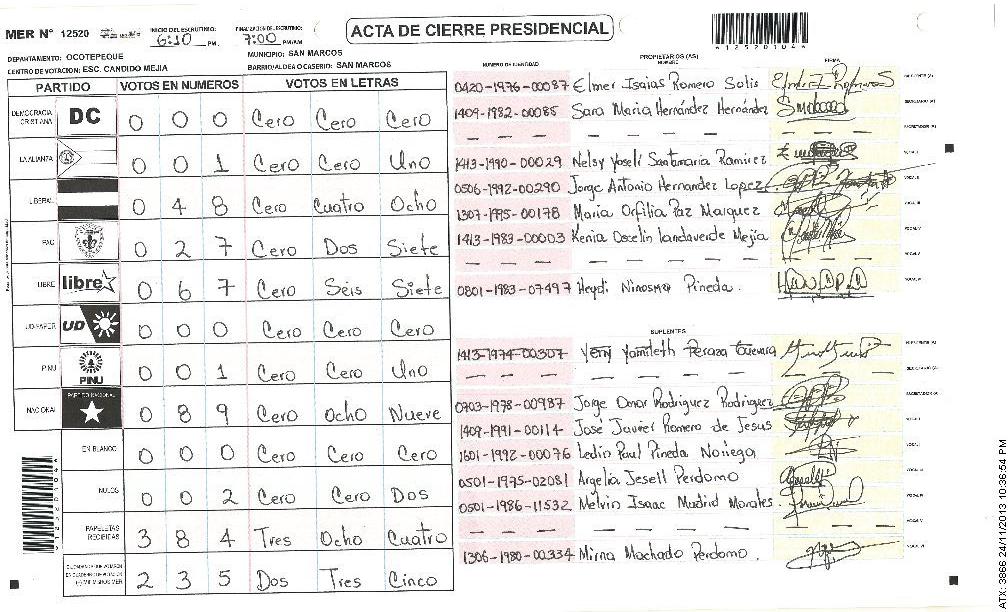 MER N° 12520
INICIO DEL ESCRUTINIO: 6:10 PM.
FINALIZACION DE ESCRUTINIO: 7:00 PM/AM
ACTA DE CIERRE PRESIDENCIAL
*12520104*
DEPARTAMENTO: OCOTEPEQUE
MUNICIPIO: SAN MARCOS
CENTRO DE VOTACION: ESC. CANDIDO MEJIA
BARRIO/ALDEA O CASERIO: SAN MARCOS
PARTIDO VOTOS EN NUMEROS VOTOS EN LETRAS
DEMOCRACIA CRISTIANA DC 0 0 0 Cero Cero Cero
LA ALIANZA 0 0 1 Cero Cero Uno
LIBERAL 0 4 8 Cero Cuatro Ocho
PAC 0 2 7 Cero Dos Siete
LIBRE libre 0 6 7 Cero Séis Siete
UD-FAPER UD 0 0 0 Cero Cero Cero
PINU PINU 0 0 1 Cero Cero Uno
NACIONAL PARTIDO NACIONAL 0 8 9 Cero Ocho Nueve
EN BLANCO 0 0 0 Cero Cero Cero
NULOS 0 0 2 Cero Cero Dos
PAPELETAS RECIBIDAS 3 8 4 Tres Ocho Cuatro
2 3 5 Dos Tres Cinco
NUMERO DE IDENTIDAD PROPIETARIOS (AS) NOMBRE FIRMA
0420-1976-00087 Elmer Isaias Romero Solis PRESIDENTE (A)
1409-1982-00085 Sara Maria Hernández Hernández SECRETARIO (A)
— — — — — — — ESCRUTADOR (A)
1413-1990-00029 Nelsy Yoseli Santamaria Ramirez VOCAL I
0506-1992-00290 Jorge Antonio Hernandez Lopez VOCAL II
1307-1995-00178 Maria Orfilia Paz Marquez VOCAL III
1413-1983-00003 Kenia Oscelin Landaverde Mejía VOCAL IV
— — — — — — — VOCAL V
0801-1983-07497 Heydi Ninosma Pineda. VOCAL VI
SUPLENTES
1413-1974-00307 Yeny Yamileth Peraza Guevara PRESIDENTE (A)
— — — — — — — SECRETARIO (A)
0703-1978-00987 Jorge Omar Rodriguez Rodriguez ESCRUTADOR (A)
1409-1991-00114 José Javier Romero de Jesus VOCAL I
1601-1992-00076 Ledin Paul Pineda Noriega VOCAL II
0501-1975-02081 Argelia Jesell Perdomo VOCAL III
0501-1986-11532 Melvin Isaac Madrid Morales. VOCAL IV
— — — — — — — VOCAL V
1306-1980-00334 Mirna Machado Perdomo. VOCAL VI
ATX: 3866 24/11/2013 10:36:54 PM